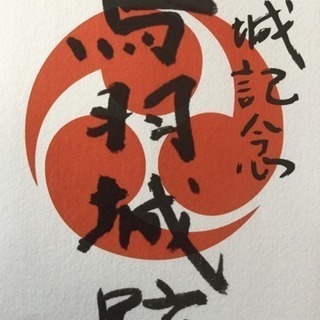 城記念
鳥羽城跡